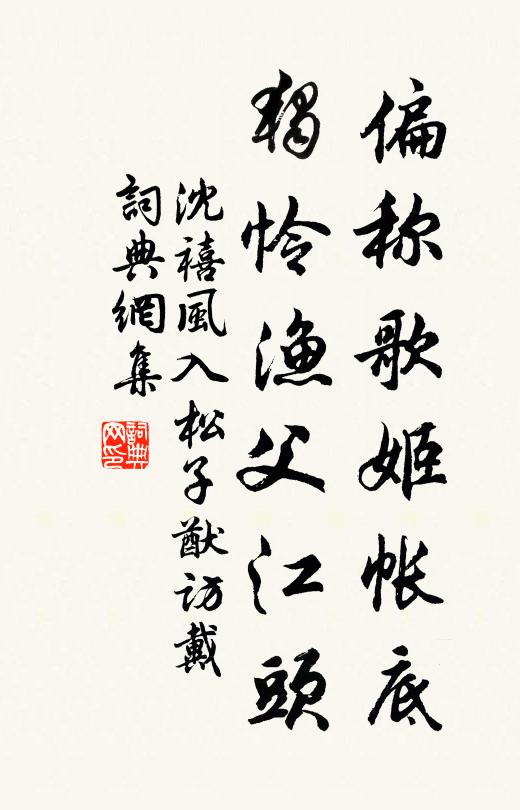 偏称歌姬帐底
獨怜渔父江頭
沈禧風入松子猷访戴
詞典網集
詞典
网印